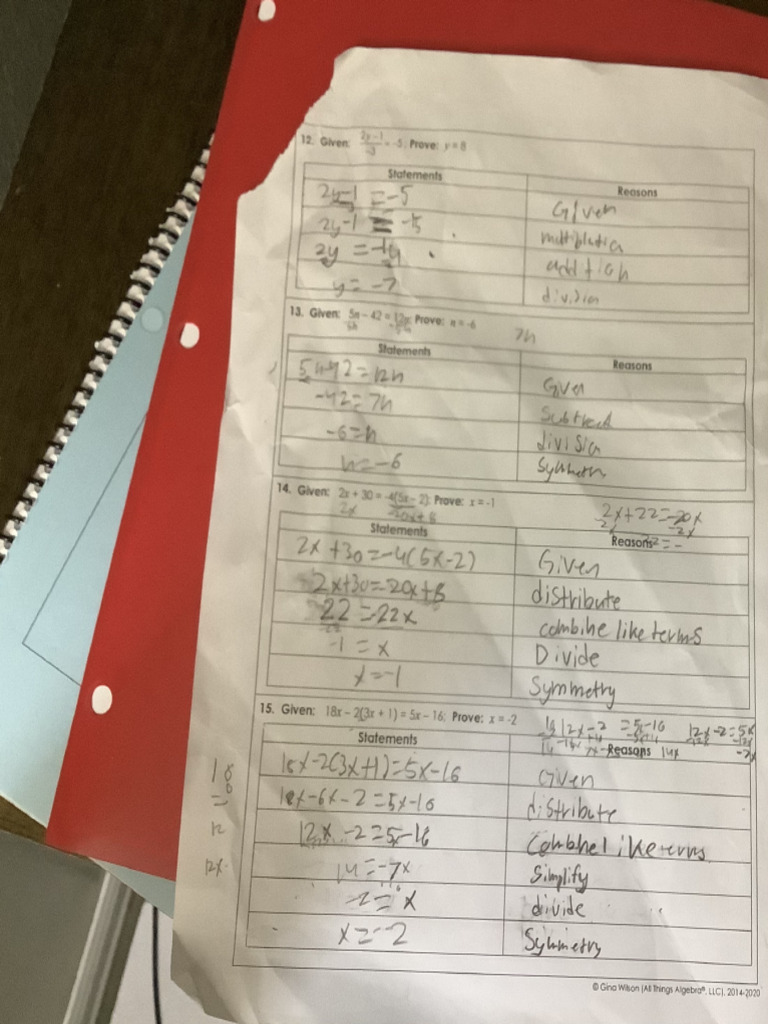 12. Given: 2y-1/-3 = -5, Prove: y = 8
Statements Reasons
2y-1 = -5 Given
2y-1 = -15
2y = -14 addition
y = -7 division
13. Given: 5n - 42 = 12n; Prove: n = -6
7n
Statements Reasons
5n-42=12n Given
-42=7n Subtract
-6=n division
n=-6
14. Given: 2x + 30 = -4(5x - 2); Prove: x = -1
2x -20x+8
2x+22=-20x
-2x -2x
22 = -
Statements Reasons
2x+30=-4(5x-2) Given
2x+30=20x+8 distribute
22=-22x combine like terms
-1=x Divide
x=-1 Symmetry
15. Given: 18x - 2(3x + 1) = 5x - 16; Prove: x = -2
12x-2 =5x-16 12x-2=5x
Statements Reasons 14x
18x-2(3x+1)=5x-16 Given
18x-6x-2=5x-16 distribute
12x-2=5x-16
14=-7x Simplify
-2=x divide
x=-2 Symmetry
18
6
12
12x
© Gina Wilson (All Things Algebra®, LLC), 2014-2020